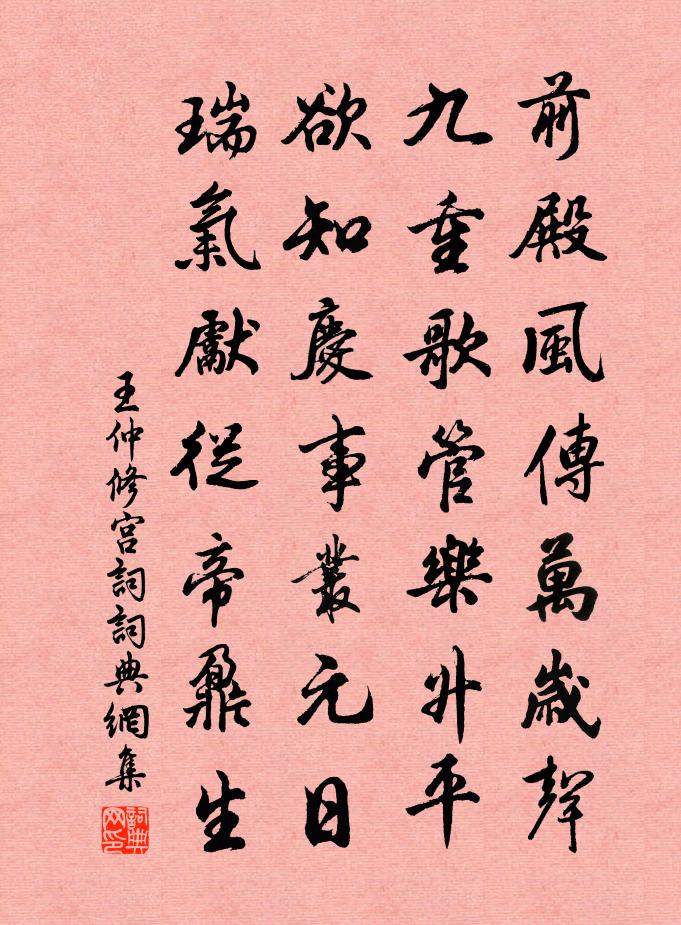 前殿風傳萬歲聲
九重歌管樂升平
欲知慶事叢元日
瑞氣獻從帝鼐生
王仲修宮詞詞典網集
詞典网印